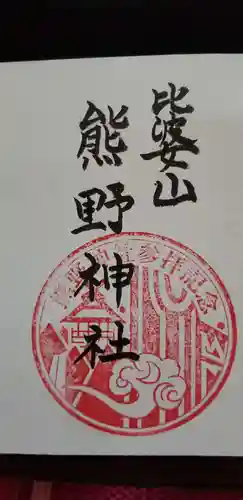 比婆山
熊野神社